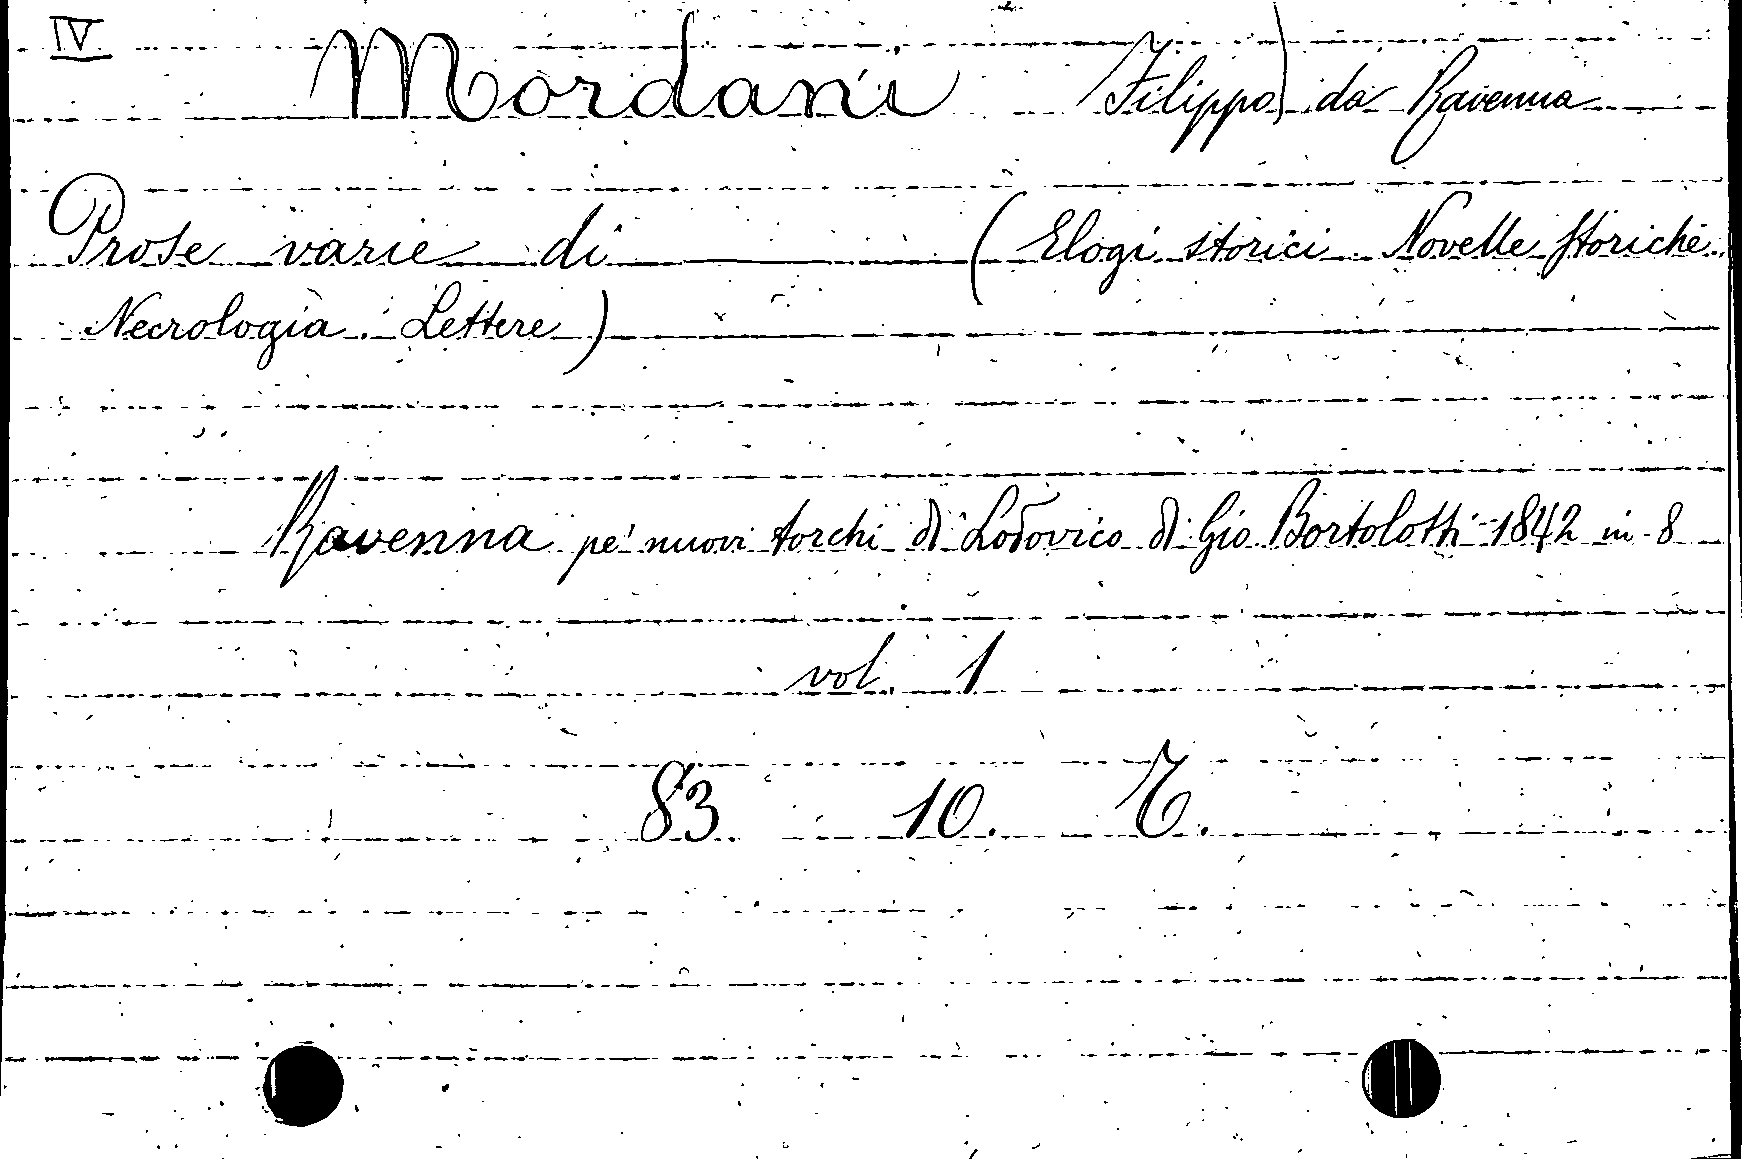 IV
Mordani Filippo) da Ravenna
Prose varie di ——— (Elogi storici Novelle storiche
Necrologia. Lettere)
Ravenna pe' nuovi torchi di Lodovico di Gio Bortolotti 1842 in 8
vol. 1
83. 10. T.